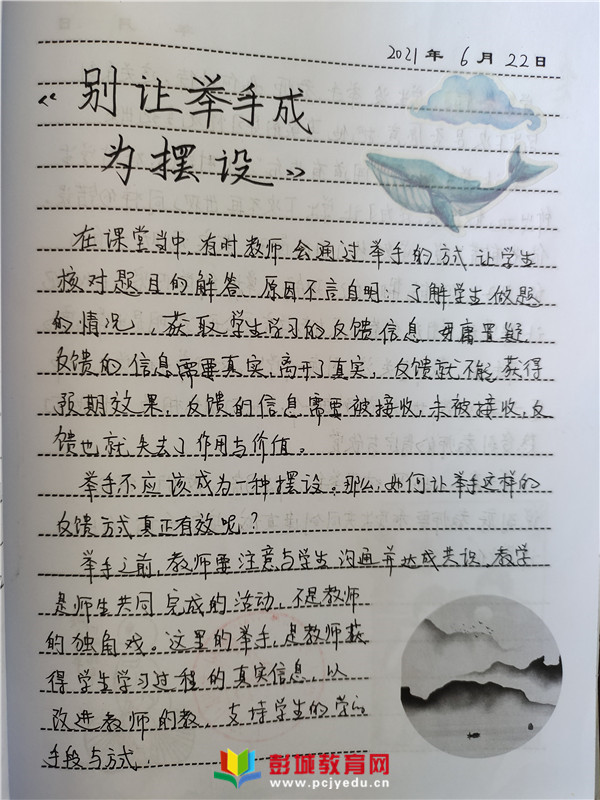 2021年 6月 22日
《别让举手成
为摆设》
在课堂当中,有时教师会通过举手的方式让学生
核对题目的解答,原因不言自明:了解学生做题
的情况,获取学生学习的反馈信息。毋庸置疑,
反馈的信息需要真实,离开了真实,反馈就不能获得
预期效果。反馈的信息需要被接收,未被接收,反
馈也就失去了作用与价值。
举手不应该成为一种摆设。那么,如何让举手这样的
反馈方式真正有效呢?
举手之前,教师要注意与学生沟通并达成共识。教学
是师生共同完成的活动,不是教师
的独角戏。这里的举手,是教师获
得学生学习过程的真实信息,以
改进教师的教,支持学生的学的
手段与方式。
彭城教育网
www.pcjyedu.cn